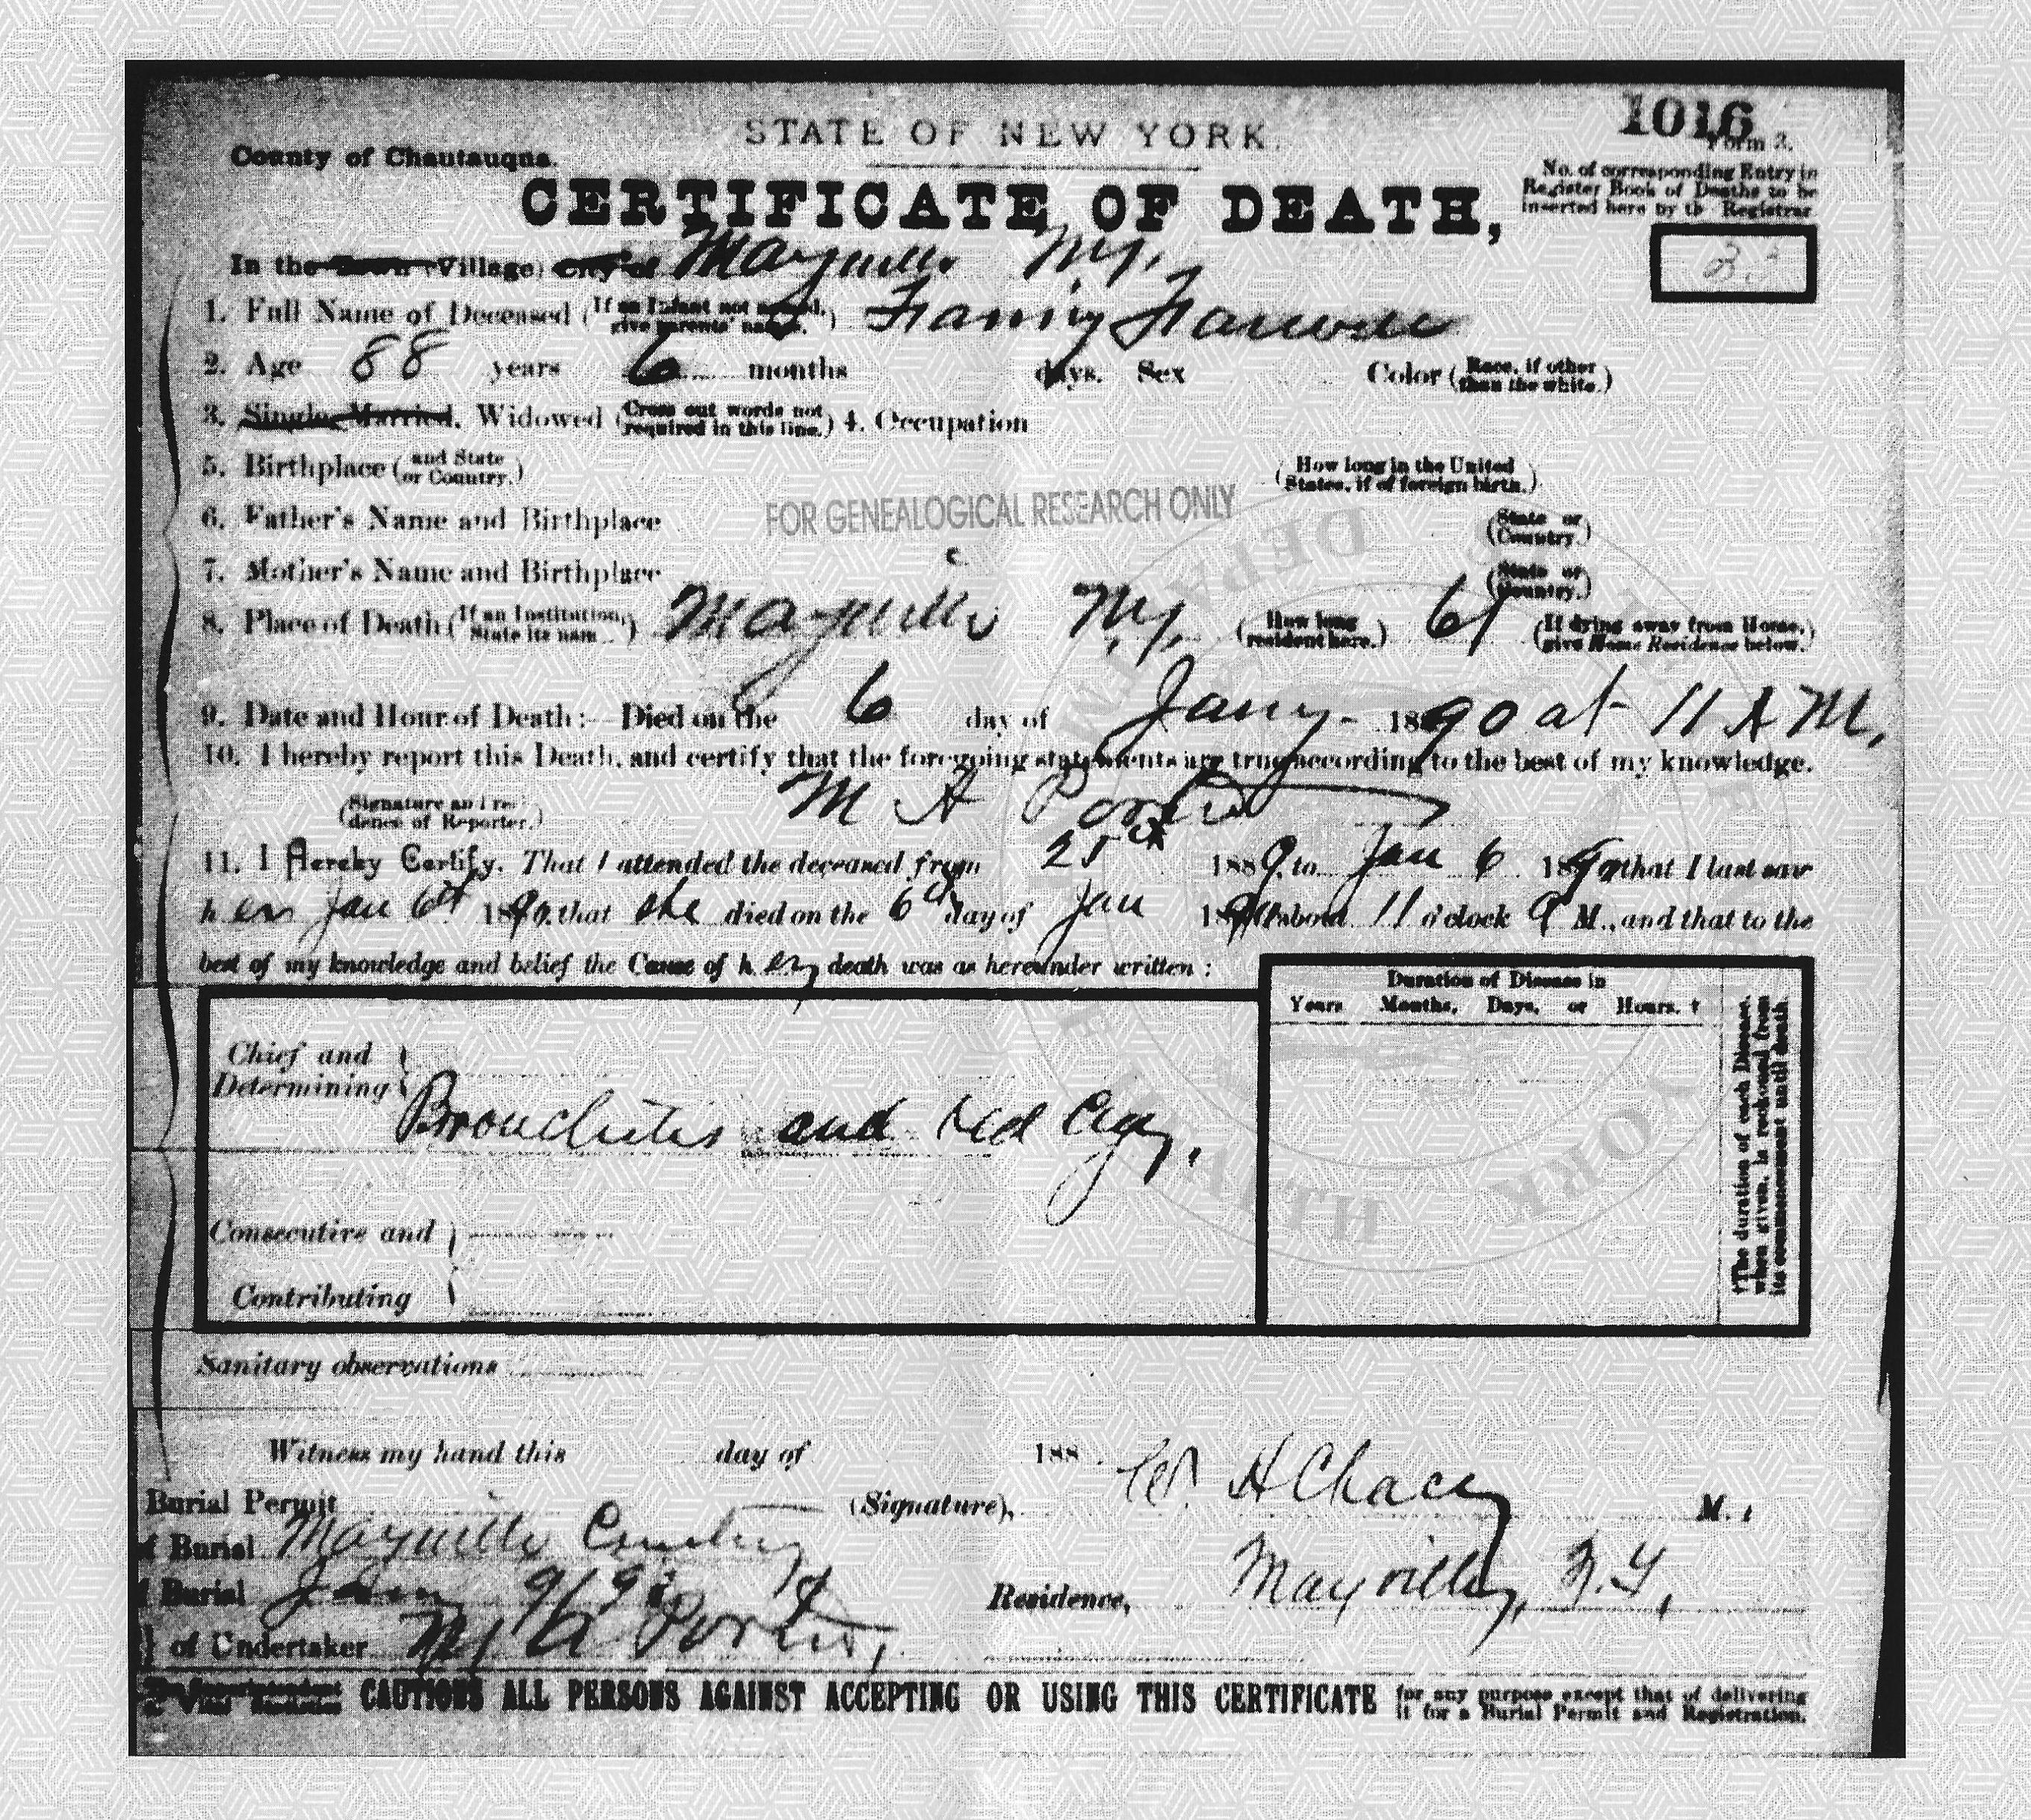 1016
STATE OF NEW YORK.
Form 3.
County of Chautauqua.
No. of corresponding Entry in
Register Book of Deaths to be
inserted here by th Registrar
CERTIFICATE OF DEATH,
33
In the Town (Village) City of Mayville N.Y.
1. Full Name of Deceased (If an Infant not named, give parents' names.) Fanny Farwell
2. Age 88 years 6 months days. Sex Color (Race, if other than the white.)
3. Single, Married, Widowed (Cross out words not required in this line.) 4. Occupation
5. Birthplace (and State or Country.) (How long in the United States, if of foreign birth.)
6. Father's Name and Birthplace (State or Country.)
FOR GENEALOGICAL RESEARCH ONLY
7. Mother's Name and Birthplace (State or Country.)
8. Place of Death (If an Institution, State its nam ) Mayville N.Y. (How long resident here.) 61 (If dying away from Home, give Home Residence below.)
9. Date and Hour of Death:—Died on the 6 day of Jany - 1890 at 11 A M,
10. I hereby report this Death, and certify that the foregoing statements are true according to the best of my knowledge.
(Signature and resi- dence of Reporter.) M A Porter
11. I Hereby Certify, That I attended the deceased from 25th 1889, to Jan 6 1890 that I last saw
her Jan 6th 1890, that she died on the 6th day of Jan 1890 about 11 o'clock A M., and that to the
best of my knowledge and belief the Cause of her death was as hereunder written:
Duration of Disease in
Years Months, Days, or Hours. †
Chief and
Determining
Bronchitis and Old Age.
Consecutive and
Contributing
†The duration of each Disease,
when given, is reckoned from
its commencement until death.
Sanitary observations
Witness my hand this day of 188 .
Burial Permit (Signature), W. H Chace M.
f Burial Mayville Cemetery
f Burial Jan 9/90 Residence, Mayville, N.Y.
of Undertaker M, A Porter,
CAUTIONS ALL PERSONS AGAINST ACCEPTING OR USING THIS CERTIFICATE for any purpose except that of delivering
it for a Burial Permit and Registration.